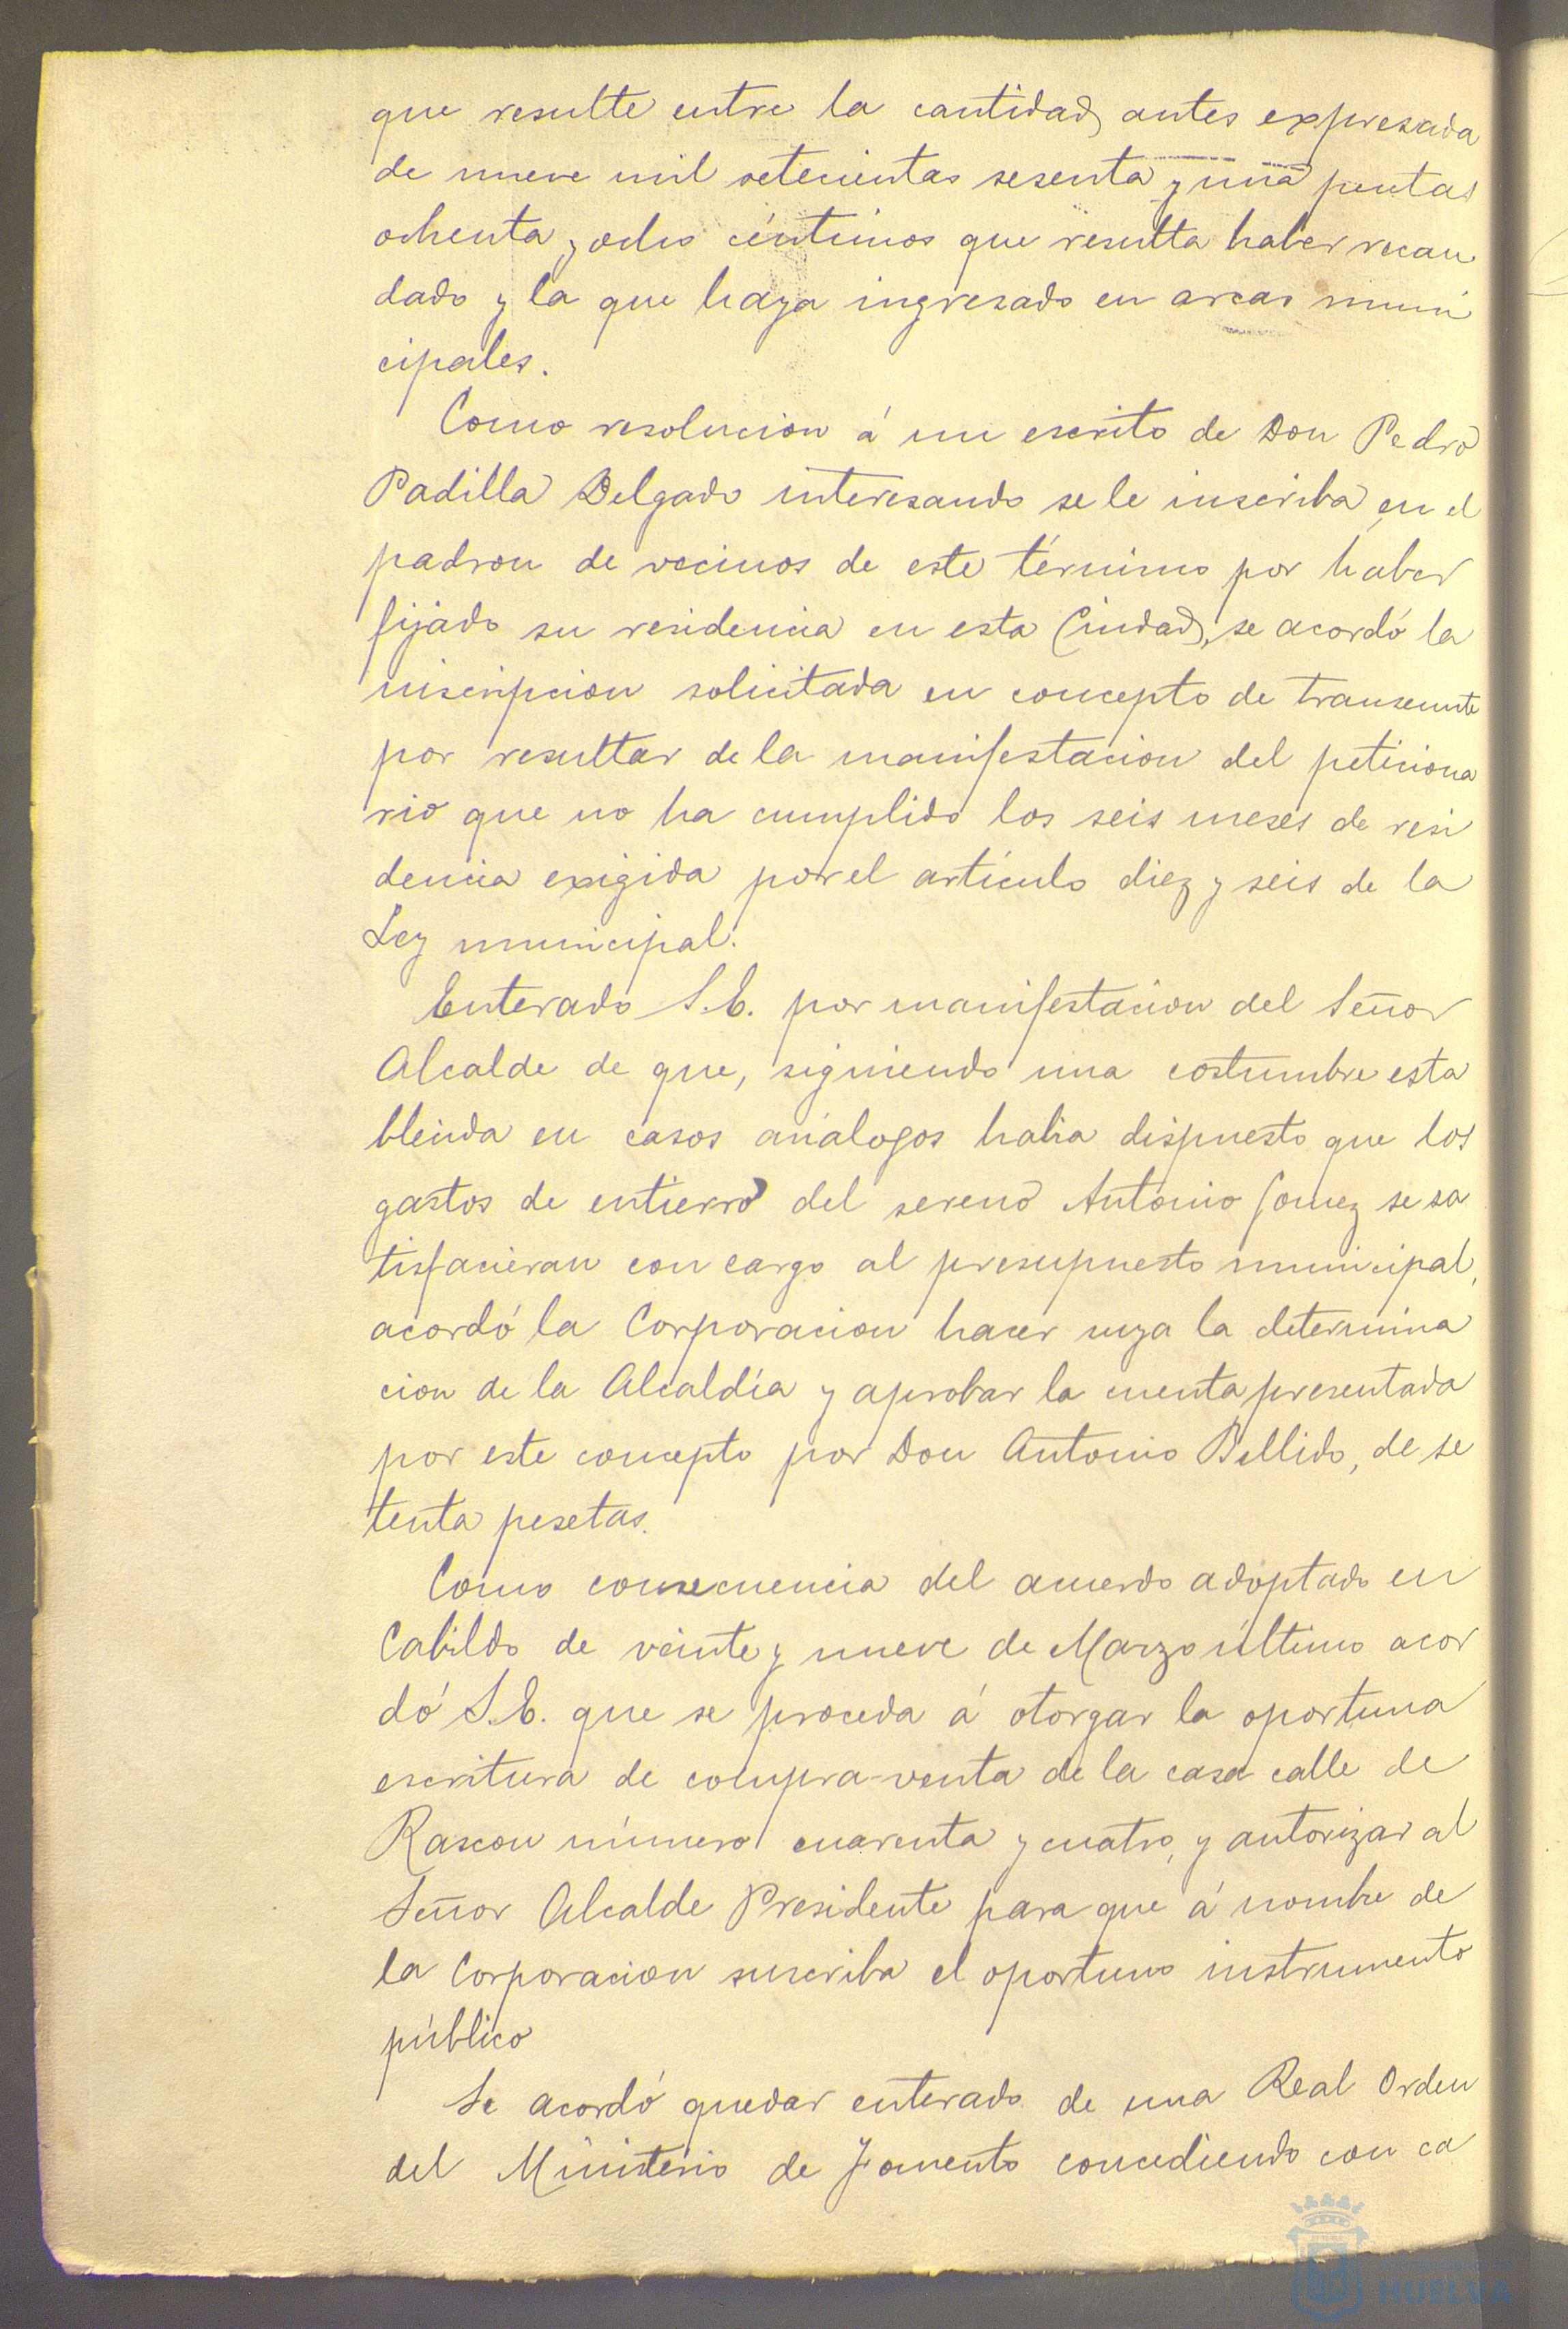 que resulte entre la cantidad antes expresada
de nueve mil setecientas sesenta y una pesetas
ochenta y ocho céntimos que resulta haber recau
dado y la que haya ingresado en arcas muni
cipales.
Como resolucion á un escrito de Don Pedro
Padilla Delgado interesando se le inscriba en el
padron de vecinos de este término por haber
fijado su residencia en esta Ciudad, se acordó la
inscripcion solicitada en concepto de transeunte
por resultar de la manifestacion del peticiona
rio que no ha cumplido los seis meses de resi
dencia exigida por el artículo diez y seis de la
Ley municipal.
Enterado S.E. por manifestacion del Señor
Alcalde de que, siguiendo una costumbre esta
blecida en casos análogos habia dispuesto que los
gastos de entierro del sereno Antonio Gomez se sa
tisfacieran con cargo al presupuesto municipal,
acordó la Corporacion hacer suya la determina
cion de la Alcaldía y aprobar la cuenta presentada
por este concepto por Don Antonio Bellido, de se
tenta pesetas.
Como consecuencia del acuerdo adoptado en
Cabildo de veinte y nueve de Marzo último acor
dó S.E. que se proceda á otorgar la oportuna
escritura de compra-venta de la casa calle de
Rascon número cuarenta y cuatro, y autorizar al
Señor Alcalde Presidente para que á nombre de
la Corporacion suscriba el oportuno instrumento
público
Se acordó quedar enterado de una Real Orden
del Ministerio de Fomento concediendo con ca
HUELVA